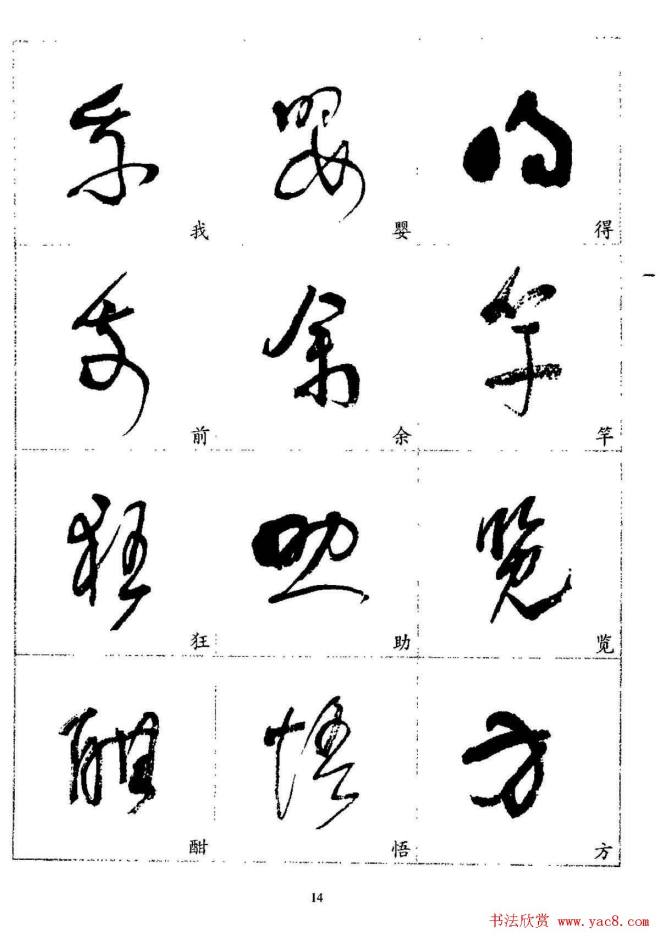 我 婴 得
前 余 竿
狂 助 览
酣 悟 方
一
14
书法欣赏 www.yac8.com